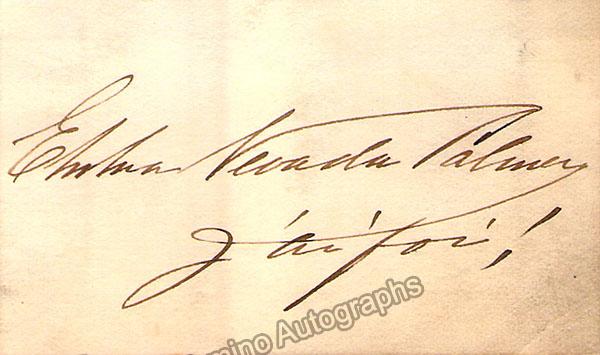 Emma Nevada Palmer
J'ai foi!
mino Autographs